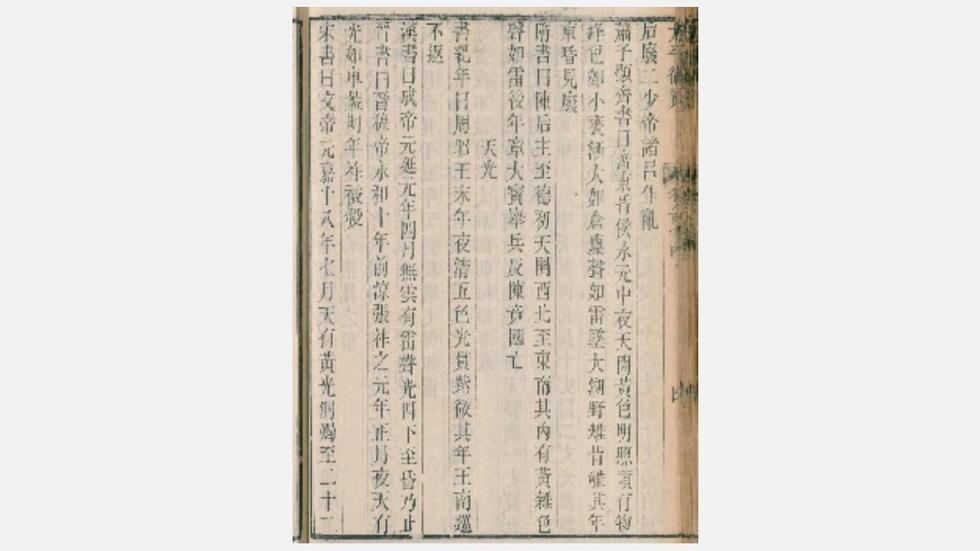 后廢二少帝諸呂作亂
蕭子顯齊書曰齊東昏侯永元中夜天開黃色明照須有物
絳色如小甕漸大如倉廩聲如雷墜大湖野雉皆雊其年
東昏見廢
隋書曰陳后主至德初天開西北至東南其內有黃雜色
聲如雷後年章大寶舉兵反陳竟國亡
天光
書紀年曰周昭王末年夜清五色光貫紫微其年王南巡
不返
漢書曰成帝元延元年四月無雲有雷聲光四下至昏乃止
晉書曰晉穆帝永和十年前涼張祚之元年正月夜天有
光如車蓋明年祚被殺
宋書曰文帝元嘉十八年七月天有黃光洞燭至二十二